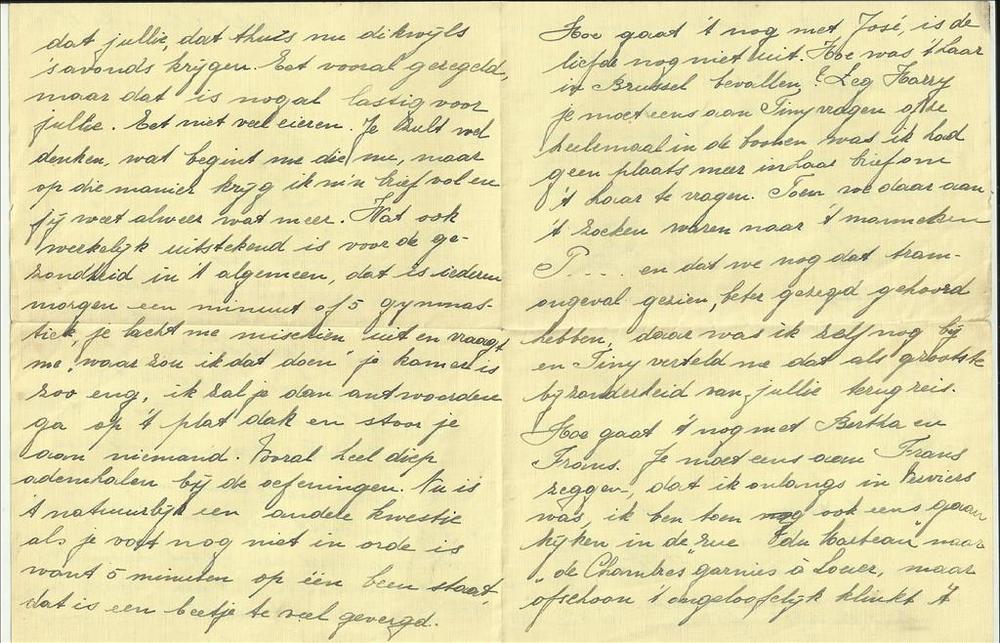 dat jullie, dat thuis nu dikwijls
's avonds krijgen. Eet vooral geregeld,
maar dat is nogal lastig voor
jullie. Eet niet veel eieren. Je zult wel
denken, wat begint me die nu, maar
op die manier krijg ik m'n brief vol en
jij weet alweer wat meer. Wat ook
werkelijk uitstekend is voor de ge-
zondheid in 't algemeen, dat is iederen
morgen een minuut of 5 gymnas-
tiek, je lacht me misschien uit en vraagt
me "waar zou ik dat doen" je kamer is
zoo eng, ik zal je dan antwoorden
ga op 't plat dak en stoor je
aan niemand. Vooral heel diep
ademhalen bij de oefeningen. Nu is
't natuurlijk een andere kwestie
als je voet nog niet in orde is
want 5 minuten op één been staat,
dat is een beetje te veel gevergd.
Hoe gaat 't nog met José, is de
liefde nog niet uit. Hoe was 't haar
in Brussel bevallen? Zeg Harry
je moet eens aan Tiny vragen of ze
heelemaal in de boonen was, ik had
geen plaats meer in haar brief om
't haar te vragen. Toen we daar aan
't zoeken waren naar 't manneken
P.... en dat we nog dat tram-
ongeval gezien, beter gezegd gehoord
hebben, daar was ik zelf nog bij
en Tiny verteld me dat als grootste
bijzonderheid van jullie terugreis.
Hoe gaat 't nog met Bertha en
Frans. Je moet eens aan Frans
zeggen, dat ik onlangs in Verviers
was, ik ben toen ook eens gaan
kijken in de "rue du Marteau" naar
"de Chambres garnies à Louer, maar
ofschoon 't ongelooflijk klinkt 't